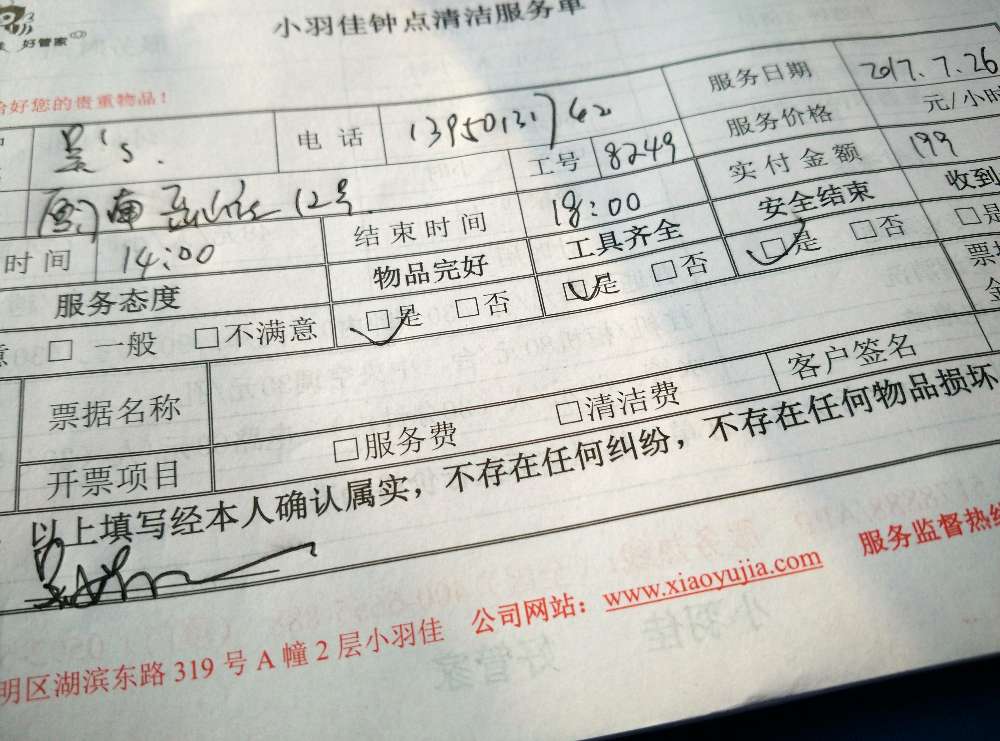 小羽佳钟点清洁服务单
好管家
给好您的贵重物品!
电话 13950131762 服务日期 2017.7.26
工号 8249 服务价格 元/小时
12号 实付金额 199
时间 14:00 结束时间 18:00 安全结束 收到
服务态度 物品完好 工具齐全 □是 □否 □是
□ 一般 □不满意 □是 □否 □是 □否 票
票据名称 客户签名 金
开票项目 □服务费 □清洁费
以上填写经本人确认属实,不存在任何纠纷,不存在任何物品损坏
明区湖滨东路 319 号 A 幢 2 层小羽佳 公司网站:www.xiaoyujia.com 服务监督热线